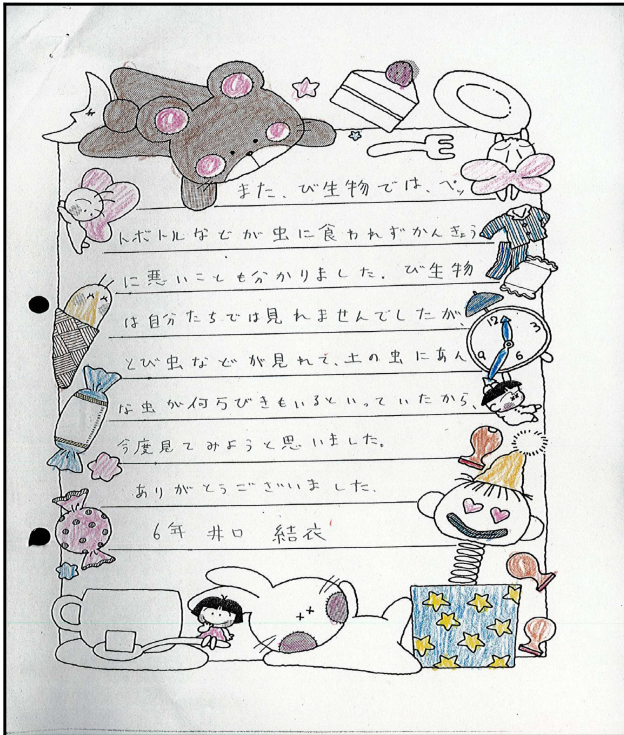 また、び生物では、ペッ
トボトルなどが虫に食われずかんきょう
に悪いことも分かりました。び生物
は自分たちでは見れませんでしたが、
とび虫などが見れて、土の虫にあん
な虫が何万びきもいるといっていたから、
今度見てみようと思いました。
ありがとうございました。
6年 井口 結衣
12
3
6
9